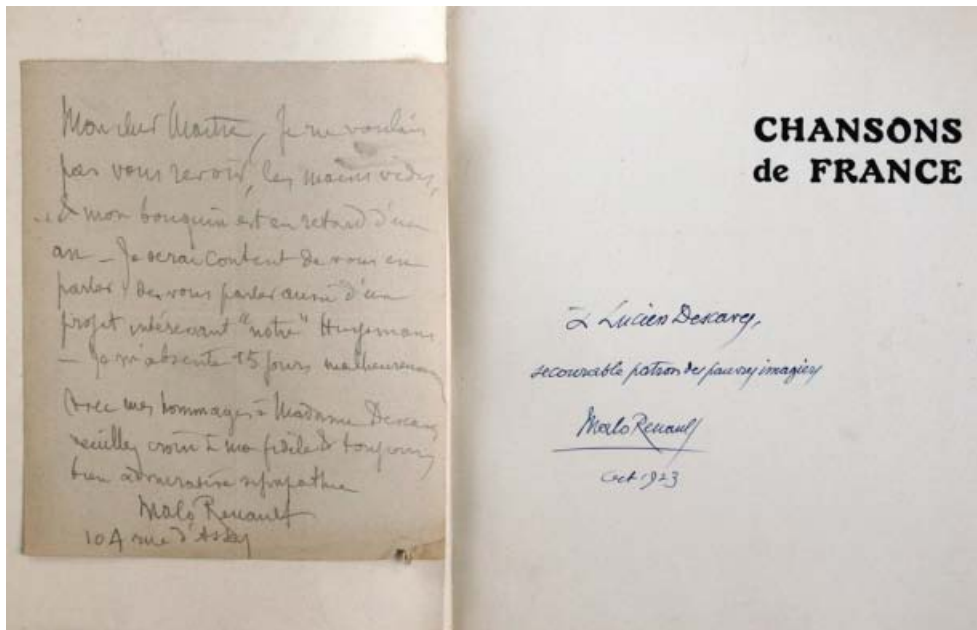 Mon cher Maître, Je ne voulais
pas vous revoir, les mains vides,
& mon bouquin est en retard d'un
an – Je serai content de vous en
parler & de vous parler aussi d'un
projet intéressant "notre" Huysmans
– Je m'absente 15 jours malheureusement
Avec mes hommages à Madame Descaves
veuillez croire à ma fidèle & toujours
bien admirative sympathie
Malo Renault
104 rue d'Assas
CHANSONS
de FRANCE
à Lucien Descaves,
secourable patron des pauvres imagiers
Malo Renault
Oct 1923